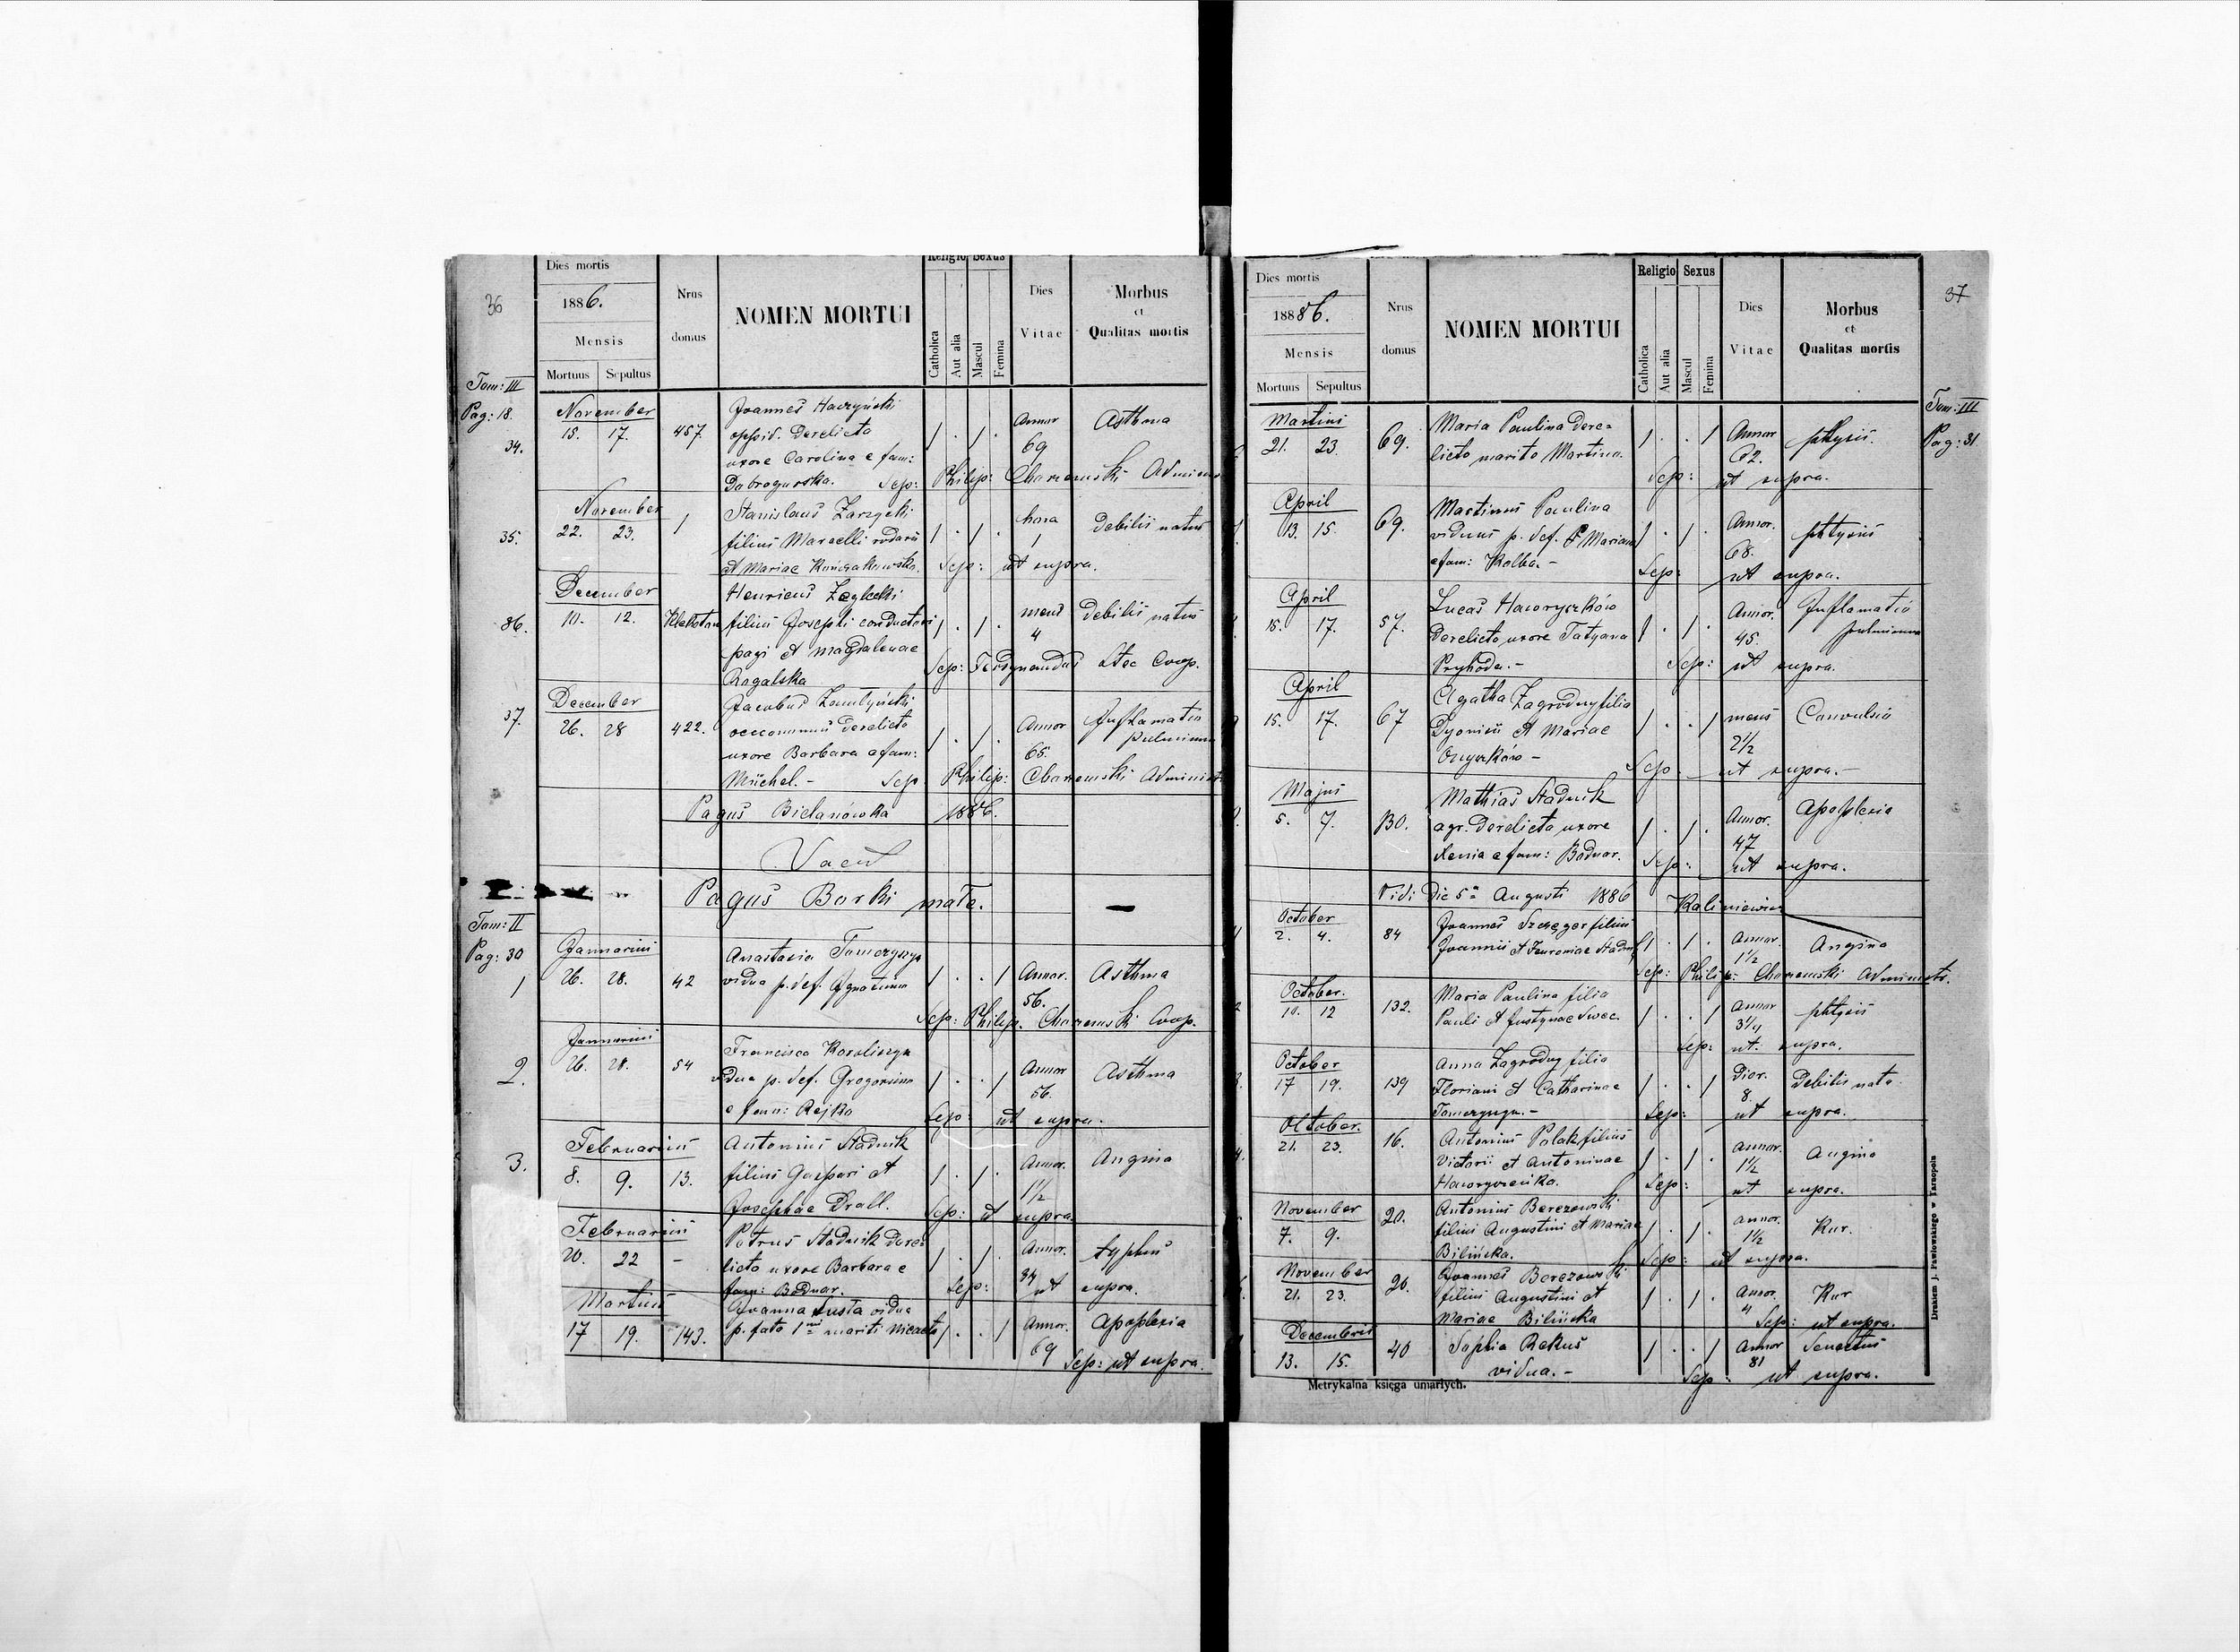 36
Dies mortis
1886.
Mensis
Mortuus Sepultus
Nrus
domus
NOMEN MORTUI
Religio Sexus
Catholica
Aut alia
Mascul
Femina
Dies
Vitae
Morbus
et
Qualitas mortis
Tom: III
Pag: 18.
34.
November
15. 17.
457.
Joannes Haczyński
oppid. derelicta
uxore Carolina e fam:
Dobrogurska. Sep: Philip: Charemski Adminis
1 . 1 .
Annor
69
Asthma
35.
November
22. 23.
1
Stanislaus Zarzycki
filius Marcelli
et Mariae
1 . 1 .
hora
1
Debilis natus
Sep: ut supra.
36.
December
10. 12.
Henricus
filius Josephi conductoris
pagi et Magdalenae
Rogalska
1 . 1 .
mens
4
Debilis natus
Sep: Ferdynandus Coop.
37.
December
26. 28
422.
Jacobus
oeconomus derelicta
uxore Barbara e fam:
Müchel. - Sep Philip: Charemski Administ
1 . 1 .
Annor
65.
Inflamatio
pulmonum
Pagus Bielanówka 1886.
Vacat
Pagus Borki małe.
Tom: II
Pag: 30
1
Januarius
26. 28.
42
Anastasia Tomczyszyn
vidua p. def. Ignatium
1 . . 1
Annor.
56.
Asthma
Sep: Philip. Charemski Coop.
2.
Januarius
26. 28.
54
Francisca Karoliszyn
vidua p. def. Gregorium
e fam: Rejko
1 . . 1
Annor
56.
Asthma
Sep: ut supra.
3.
Februarius
8. 9.
13.
Antonius Stadnik
filius Gaspari et
Josephae Drall.
1 . 1 .
Annor.
1½
Angina
Sep: ut supra
Februarius
20. 22
-
Petrus Stadnik dere-
licta uxore Barbara e
fam: Bodnar.
1 . 1 .
Annor.
34
typhus
Sep: ut supra.
Martius
17 19.
143.
Joanna Susta vidua
p. fato 1mi mariti
1 . . 1
Annor.
69
Apoplexia
Sep: ut supra.
37
Dies mortis
1886.
Mensis
Mortuus Sepultus
Nrus
domus
NOMEN MORTUI
Religio Sexus
Catholica
Aut alia
Mascul
Femina
Dies
Vitae
Morbus
et
Qualitas mortis
Tom: III
Pag: 31
Martini
21. 23.
69.
Maria Paulina dere-
licto marito Martino.
1 . . 1
Annor
62.
phtysis.
Sep: ut supra.
April
13. 15.
69.
Martinus Paulina
viduus p. def. Mariam
e fam: Kolba. -
1 . 1 .
Annor.
68.
phtysis
Sep: ut supra.
April
15. 17.
57.
Lucas Haworyszków
derelicta uxore Tatyana
Pryhoda. -
1 . 1 .
Annor.
45.
Inflamatio
pulmonum
Sep: ut supra.
April
15. 17.
67
Agatha Zagrodny filia
Dyonisii et Mariae
Onyszków -
1 . . 1
mens
2½
Convulsio
Sep: ut supra. -
Majus
5. 7.
130.
Mathias Stadnik
agr. derelicta uxore
Xenia e fam: Bodnar.
1 . 1 .
Annor.
47
Apoplexia
Sep: ut supra.
Vidi Die 5a Augusti 1886 Kaliniewicz
October
2. 4.
84
Joannes filius
Joannis et Stadnik
1 . 1 .
Annor.
1½
Angina
Sep: Philip: Charemski Administr.
October.
10. 12
132.
Maria Paulina filia
Pauli et Justynae Swec.
1 . . 1
Annor
3¼
phtysis
Sep: ut supra.
October
17 19.
139
Anna Zagrodny filia
Floriani et Catharinae
Tomczyszyn. -
1 . . 1
Dier.
8.
Debilis nata.
Sep: ut supra.
October.
21. 23.
16.
Antonius Polak filius
Victorii et Antoninae
1 . 1 .
annor.
1½
Angina
Sep: ut supra.
November
7. 9.
20.
Antonius Berezowski
filius Augustini et Mariae
Bilińska.
1 . 1 .
annor.
1½
Kur.
Sep: ut supra.
November
21. 23.
20.
Joannes Berezowski
filius Augustini et
Mariae Bilińska
1 . 1 .
Annor.
4
Kur
Sep: ut supra.
Decembris
13. 15.
40
Sophia Rakus
vidua. -
1 . . 1
Annor
81
Senectus
Sep: ut supra.
Metrykalna księga umarłych.
Drukiem J. Pawłowskiego w Tarnopolu